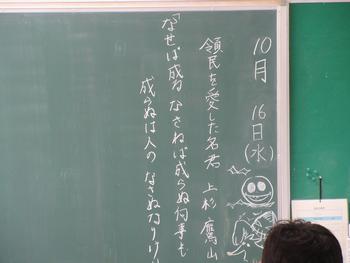 10月 16日(水)
領民を愛した名君 上杉鷹山
「なせば成る なさねば成らぬ何事も
成らぬは人の なさぬなりけり